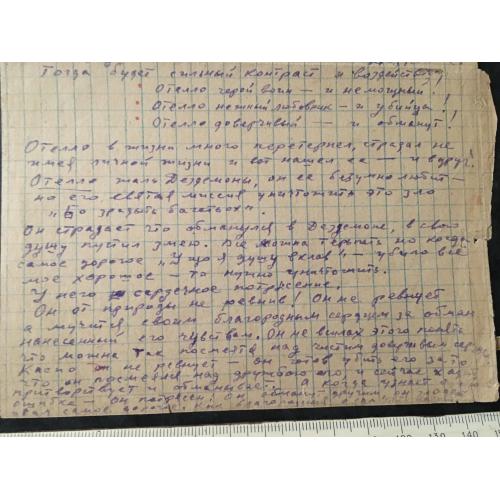 Тогда будет сильный контраст и воздействие!
Отелло герой воин — и немощный!
Отелло нежный любовник — и убийца!
Отелло доверчивый — и обманут!
Отелло в жизни много перетерпел, страдал не
имея личной жизни и вот нашел ее — и вдруг!
Отелло жаль Дездемоны, он ее безумно любит —
но его святая миссия уничтожить это зло
"Бо зрадить багатьох".
Он страдает что обманулся в Дездемоне, в свою
душу пустил змею. Все можна терпеть но когда
самое дорогое "У що я душу вклав" — убило всё
мое хорошое — то нужно уничтожить.
У него сердечное потрясение.
Он от природы не ревнив! Он не ревнует
а мучится своим благородным сердцем за обман
нанесенный его чувствам. Он не в силах этого понять
что можна так посметь над чистым доверчивым
Касио он не ревнует он готов убить его за то
что он посмеялся над дружбою его и сейчас
притворствует и обманывает. а когда узнает о
он потрясен!
самое дорогое
140 130 120